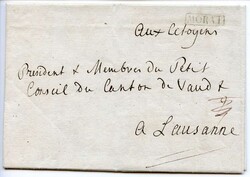 MORAT
Aux Citoyens
President & Membres du Petit
Conseil du Canton de Vaud &
a Lausanne